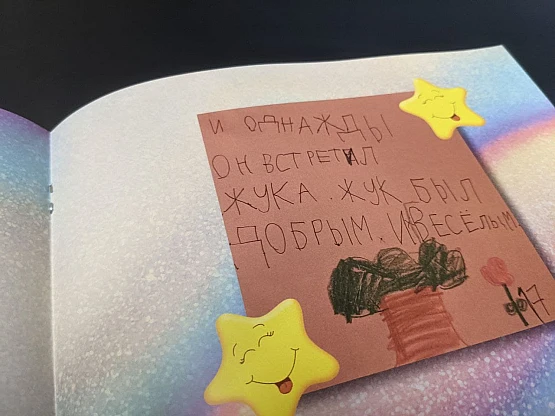 И ОДНАЖДЫ
ОН ВСТРЕТИЛ
ЖУКА. ЖУК БЫЛ
ДОБРЫМ. И ВЕСЁЛЫМ